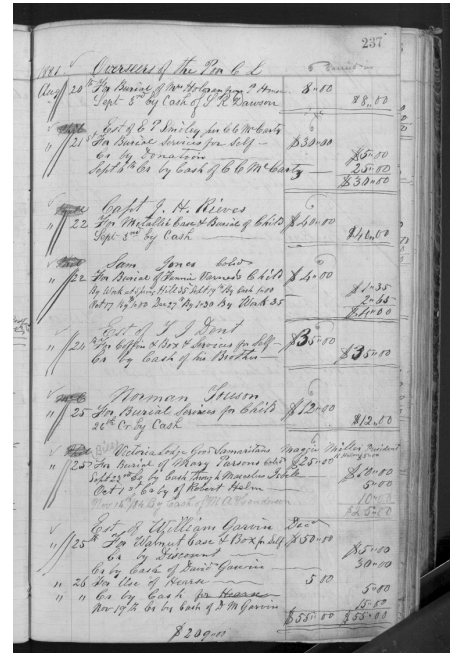 237
Overseers of the Poor C. L.
Aug 20th For Burial of Mrs from P. House 8"00
Sept 3rd by Cash of S R Dawson $8,00
Est of E P Smiley per C C McCarty
" 21st For Burial Services for Self $30"00
Cr by Donation $5"00
Sept 4th Cr by Cash of C C McCarty 25"00
$30"00
Capt J. H. Rieves
" 22 For Metallic Case & Burial of Child $40"00
Sept 3rd by Cash $40,00
Sam Jones Cold
" 22 For Burial of Fannie Child $4"00
By Work 35 Sept 19th By Cash 1.00 $1"35
Oct 17 By 1.00 Dec 27 By 1.30 By Work 35 2"65
$4"00
Est of T J Dent
" 24th For Coffin & Box & Services for Self $35"00
Cr by Cash of his Brother $35"00
Norman
" 25 For Burial Services for Child $12"00
26th Cr By Cash $12,00
Victoria Lodge Good Samaritans Maggie Miller President
" 25th For Burial of Mary Parsons Cold $25"00
Sept 22nd Cr by Cash Through $10"00
Oct 1st Cr by of Robert Helm 5"00
Nov 14th By Cash of M A Henderson 10"00
$25"00
Est of William Garvin Decd
" 25th For Walnut Case & Box for Self $50"00
Cr by Discount $5"00
Cr by Cash of David Garvin 30"00
" 25 For Use of Hearse 5"00
" " Cr by Cash for Hearse 5"00
Nov 19th Cr by Cash of D M Garvin 15"00
$55"00 $55"00
$209"00